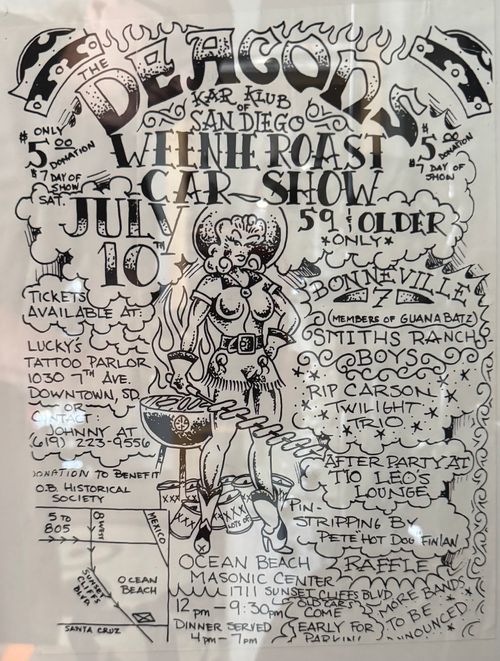 THE
DEACONS
KAR KLUB
OF
SAN DIEGO
WEENIE ROAST
CAR SHOW
ONLY
$5.00
DONATION
$7 DAY OF
SHOW
$5.00
DONATION
$7 DAY OF
SHOW
SAT.
JULY
10TH
59 & OLDER
*ONLY*
TICKETS
AVAILABLE AT:
LUCKY'S
TATTOO PARLOR
1030 7TH AVE.
DOWNTOWN, SD
OR
CONTACT
JOHNNY AT
(619) 223-9556
DONATION TO BENEFIT
O.B. HISTORICAL
SOCIETY
BONNEVILLE
7
(MEMBERS OF GUANA BATZ)
SMITHS RANCH
BOYS
RIP CARSON
TWILIGHT
TRIO
AFTER PARTY AT
TIO LEO'S
LOUNGE
PIN-
STRIPPING BY
PETE "HOT DOG" FINLAN
RAFFLE
MORE BANDS
TO BE
ANNOUNCED
XXX
XXX
XXX
LOTS OF
5 TO
805
8 WEST
MEXICO
SUNSET
CLIFFS
BLVD
OCEAN
BEACH
SANTA CRUZ
OCEAN BEACH
MASONIC CENTER
1711 SUNSET CLIFFS BLVD
12 pm - 9:30pm
DINNER SERVED
4pm - 7pm
OLD CARS
COME
EARLY FOR
PARKING